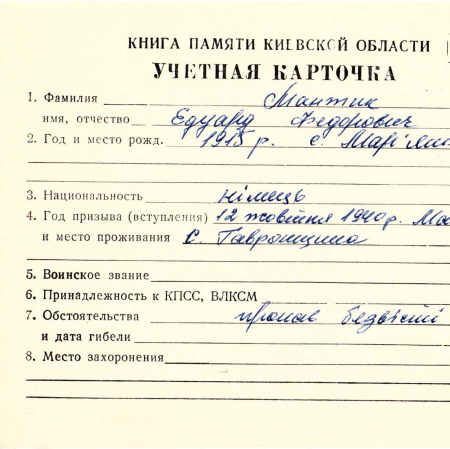 КНИГА ПАМЯТИ КИЕВСКОЙ ОБЛАСТИ
УЧЕТНАЯ КАРТОЧКА
1. Фамилия Мантик
имя, отчество Едуард Федорович
2. Год и место рожд. 1915 р. с. Мар'ян
3. Национальность німець
4. Год призыва (вступления) 12 жовтня 1940 р. Ма
и место проживания с. Гавронщина
5. Воинское звание
6. Принадлежность к КПСС, ВЛКСМ
7. Обстоятельства пропав безвісти
и дата гибели
8. Место захоронения